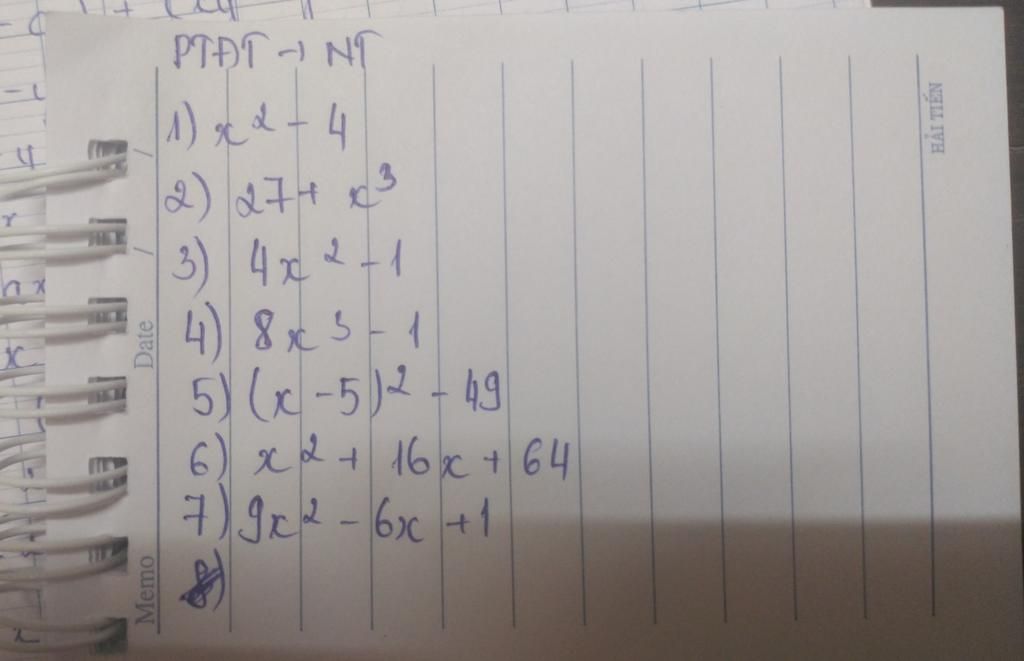 PTĐT → NT
1) x² - 4
2) 27 + x³
3) 4x² - 1
4) 8x³ - 1
5) (x - 5)² - 49
6) x² + 16x + 64
7) 9x² - 6x + 1
Date / /
Memo
HẢI TIẾN